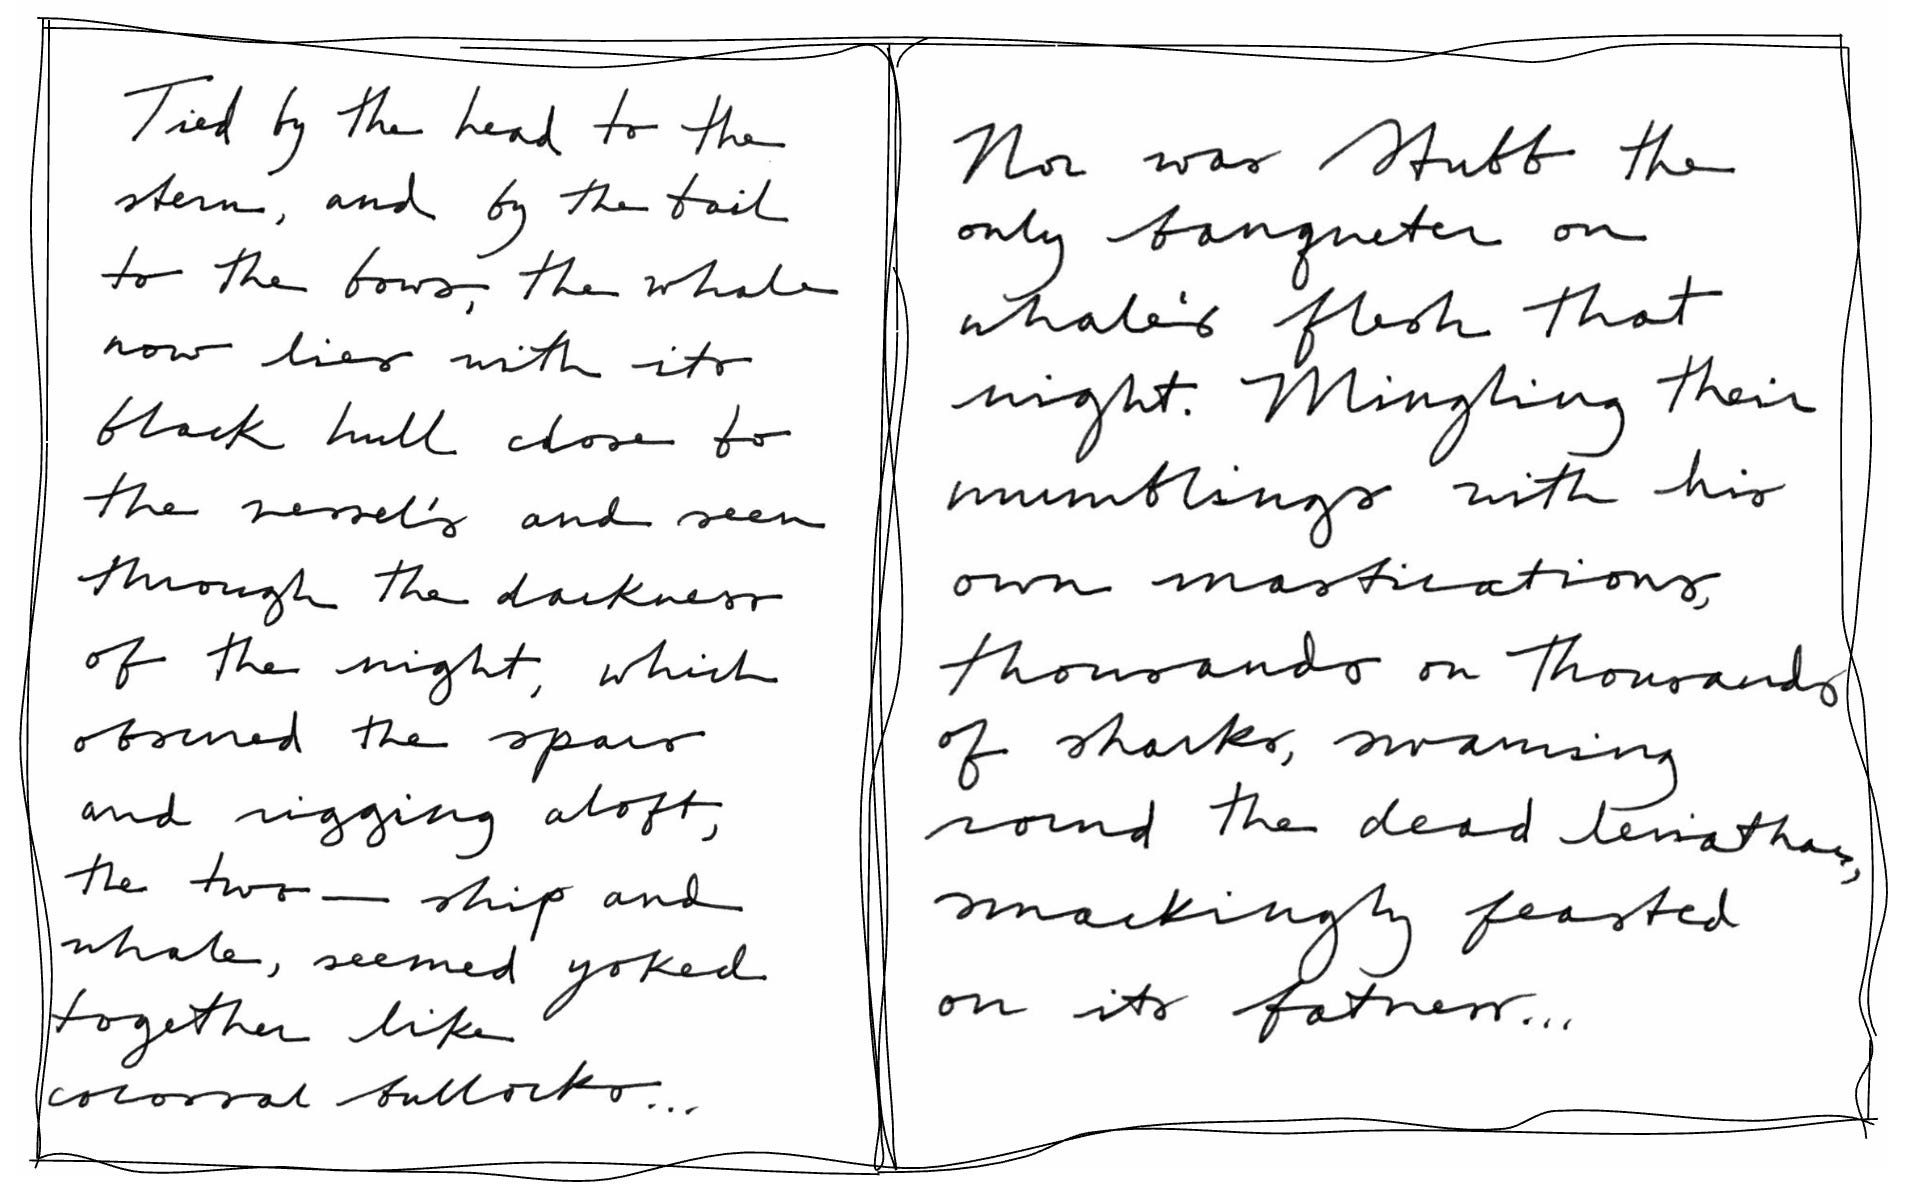 Tied by the head to the
stern, and by the tail
to the bows, the whale
now lies with its
black hull close to
the vessel's and seen
through the darkness
of the night, which
obscured the spars
and rigging aloft,
the two — ship and
whale, seemed yoked
together like
colossal bullocks...
Nor was Stubb the
only banqueter on
whale's flesh that
night. Mingling their
mumblings with his
own mastications,
thousands on thousands
of sharks, swarming
round the dead leviathan,
smackingly feasted
on its fatness...